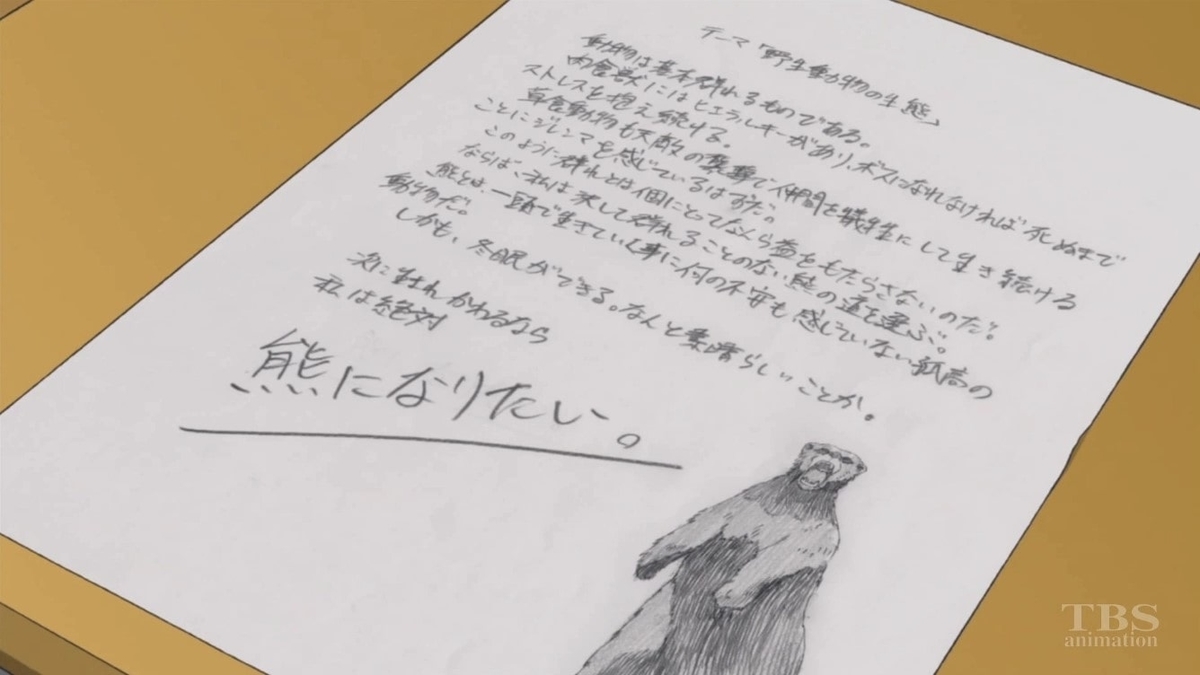 テーマ「野生動物の生態」
動物は基本群れるものである。
肉食獣にはヒエラルキーがあり、ボスになれなければ死ぬまで
ストレスを抱え続ける。
草食動物も天敵の襲撃で仲間を犠牲にして生き続ける
ことにジレンマを感じているはずだ。
このように群れとは個にとってなんら益をもたらさないのだ。
ならば、私は決して群れることのない熊の道を選ぶ。
熊とは、一頭で生きていく事に何の不安も感じていない孤高の
動物だ。
しかも、冬眠ができる。なんと素晴らしいことか。
次に生れかわるなら
私は絶対
熊になりたい。
TBS
animation